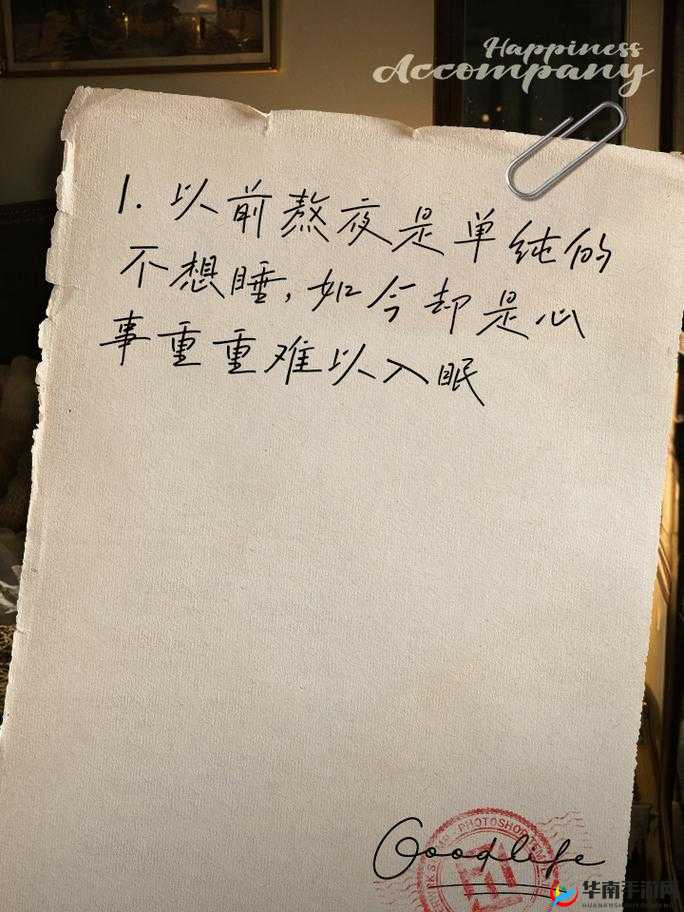 Happiness
Accompany
1. 以前熬夜是单纯的
不想睡,如今却是心
事重重难以入眠
PHOTOSHOP
Goodlife
华南手游网